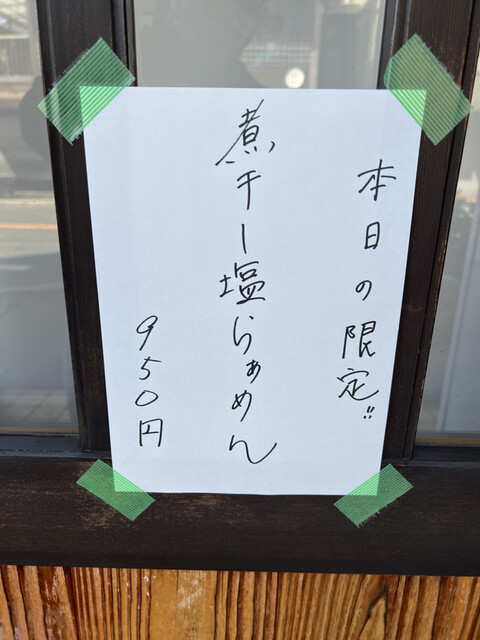 本日の限定!!
煮干し塩らぁめん
950円